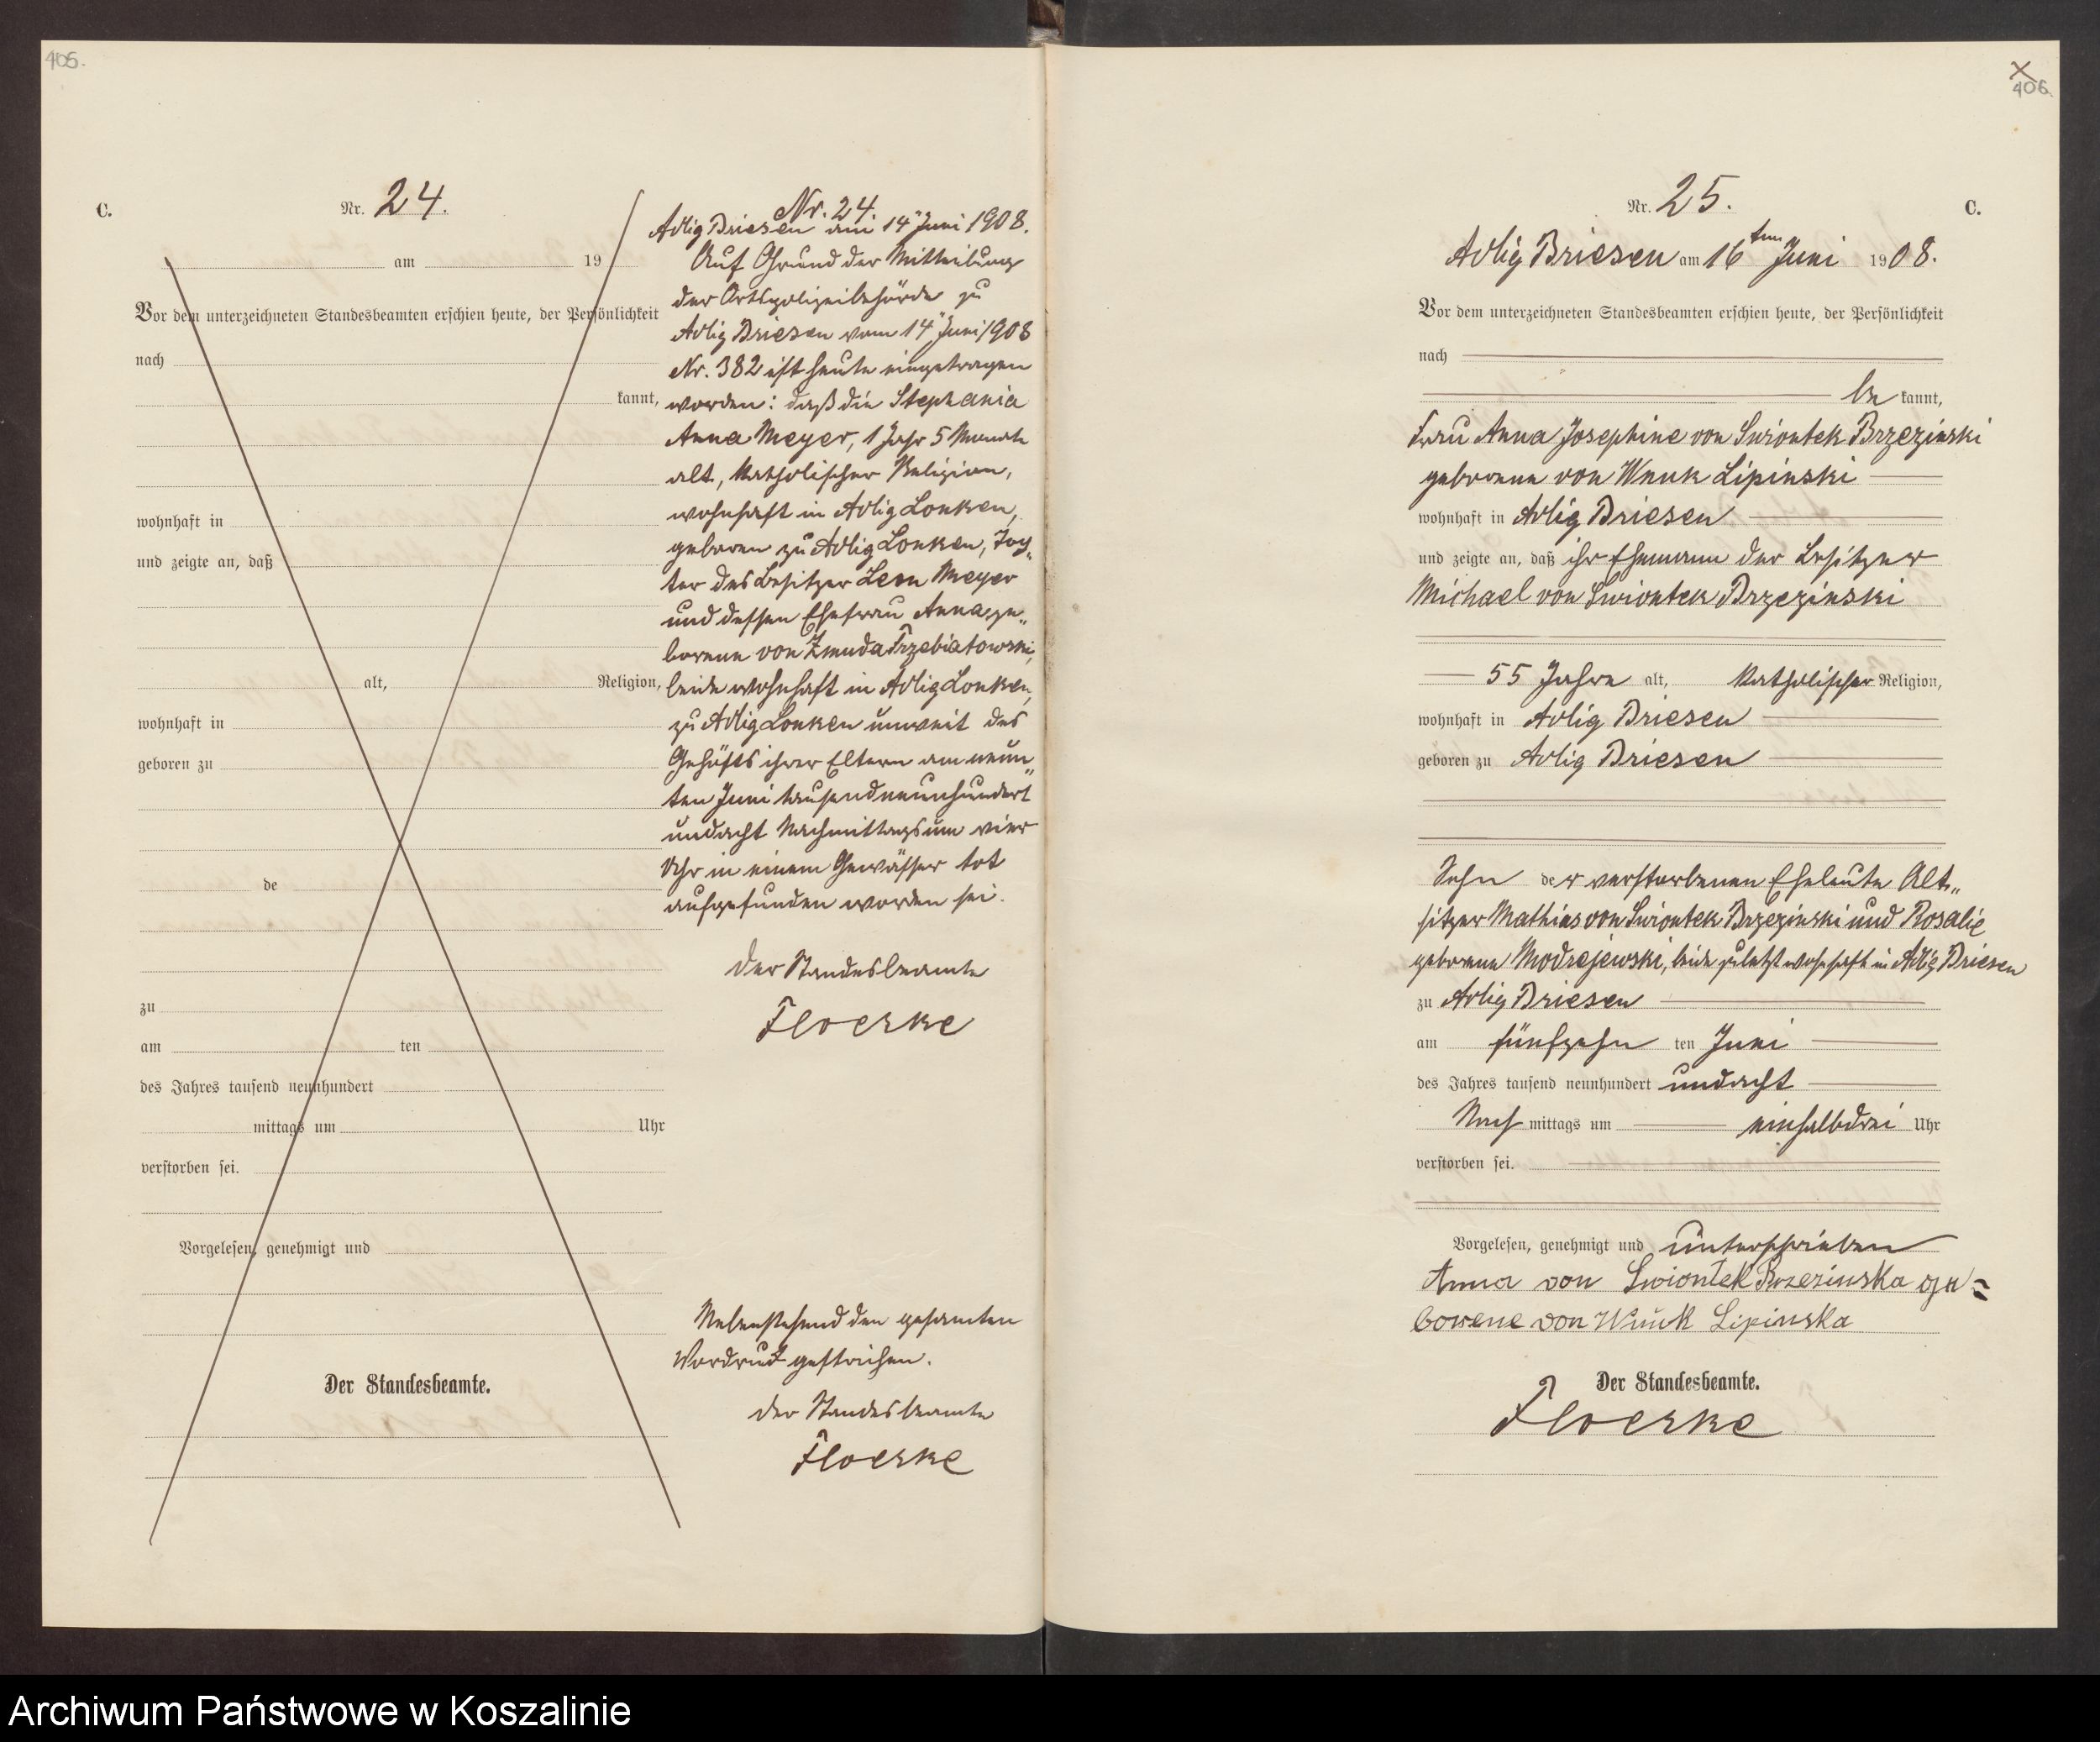 405.
C.
Nr. 24.
am 19
Vor dem unterzeichneten Standesbeamten erschien heute, der Persönlichkeit
nach
kannt,
wohnhaft in
und zeigte an, daß
alt, Religion,
wohnhaft in
geboren zu
de
zu
am ten
des Jahres tausend neunhundert
mittags um Uhr
verstorben sei.
Vorgelesen, genehmigt und
Der Standesbeamte.
Nr. 24.
Adlig Briesen am 14" Juni 1908.
Auf Grund der Mitteilung
der Ortspolizeibehörde zu
Adlig Briesen vom 14" Juni 1908
Nr. 382 ist heute eingetragen
worden: daß die Stephania
Anna Meyer, 1 Jahr 5 Monate
alt, katholischer Religion,
wohnhaft in Adlig Lonken,
geboren zu Adlig Lonken, Toch„
ter des Besitzer Leon Meyer
und dessen Ehefrau Anna ge„
borene von Zmuda Trzebiatowski,
beide wohnhaft in Adlig Lonken,
zu Adlig Lonken unweit des
Gehöfts ihrer Eltern am neun„
ten Juni tausendneunhundert
undacht Nachmittags um vier
Uhr in einem Gewässer tot
aufgefunden worden sei.
Der Standesbeamte
Floerke
Nebenstehend den gesamten
Vordruck gestrichen.
Der Standesbeamte
Floerke
406.
Nr. 25.
C.
Adlig Briesen am 16ten Juni 1908.
Vor dem unterzeichneten Standesbeamten erschien heute, der Persönlichkeit
nach
be kannt,
Frau Anna Josephine von Swiontek Brzezinski
geborene von Wnuk Lipinski
wohnhaft in Adlig Briesen
und zeigte an, daß ihr Ehemann der Besitzer
Michael von Swiontek Brzezinski
55 Jahre alt, katholischer Religion,
wohnhaft in Adlig Briesen
geboren zu Adlig Briesen
Sohn der verstorbenen Eheleute Alt„
sitzer Mathias von Swiontek Brzezinski und Rosalie
geborene Modrejewski, beide zuletzt wohnhaft in Adlig Briesen
zu Adlig Briesen
am fünfzehn ten Juni
des Jahres tausend neunhundert undacht
Nach mittags um einhalbdrei Uhr
verstorben sei.
Vorgelesen, genehmigt und unterschrieben
Anna von Swiontek Brzezinska ge=
borene von Wnuk Lipinska
Der Standesbeamte.
Floerke
Archiwum Państwowe w Koszalinie